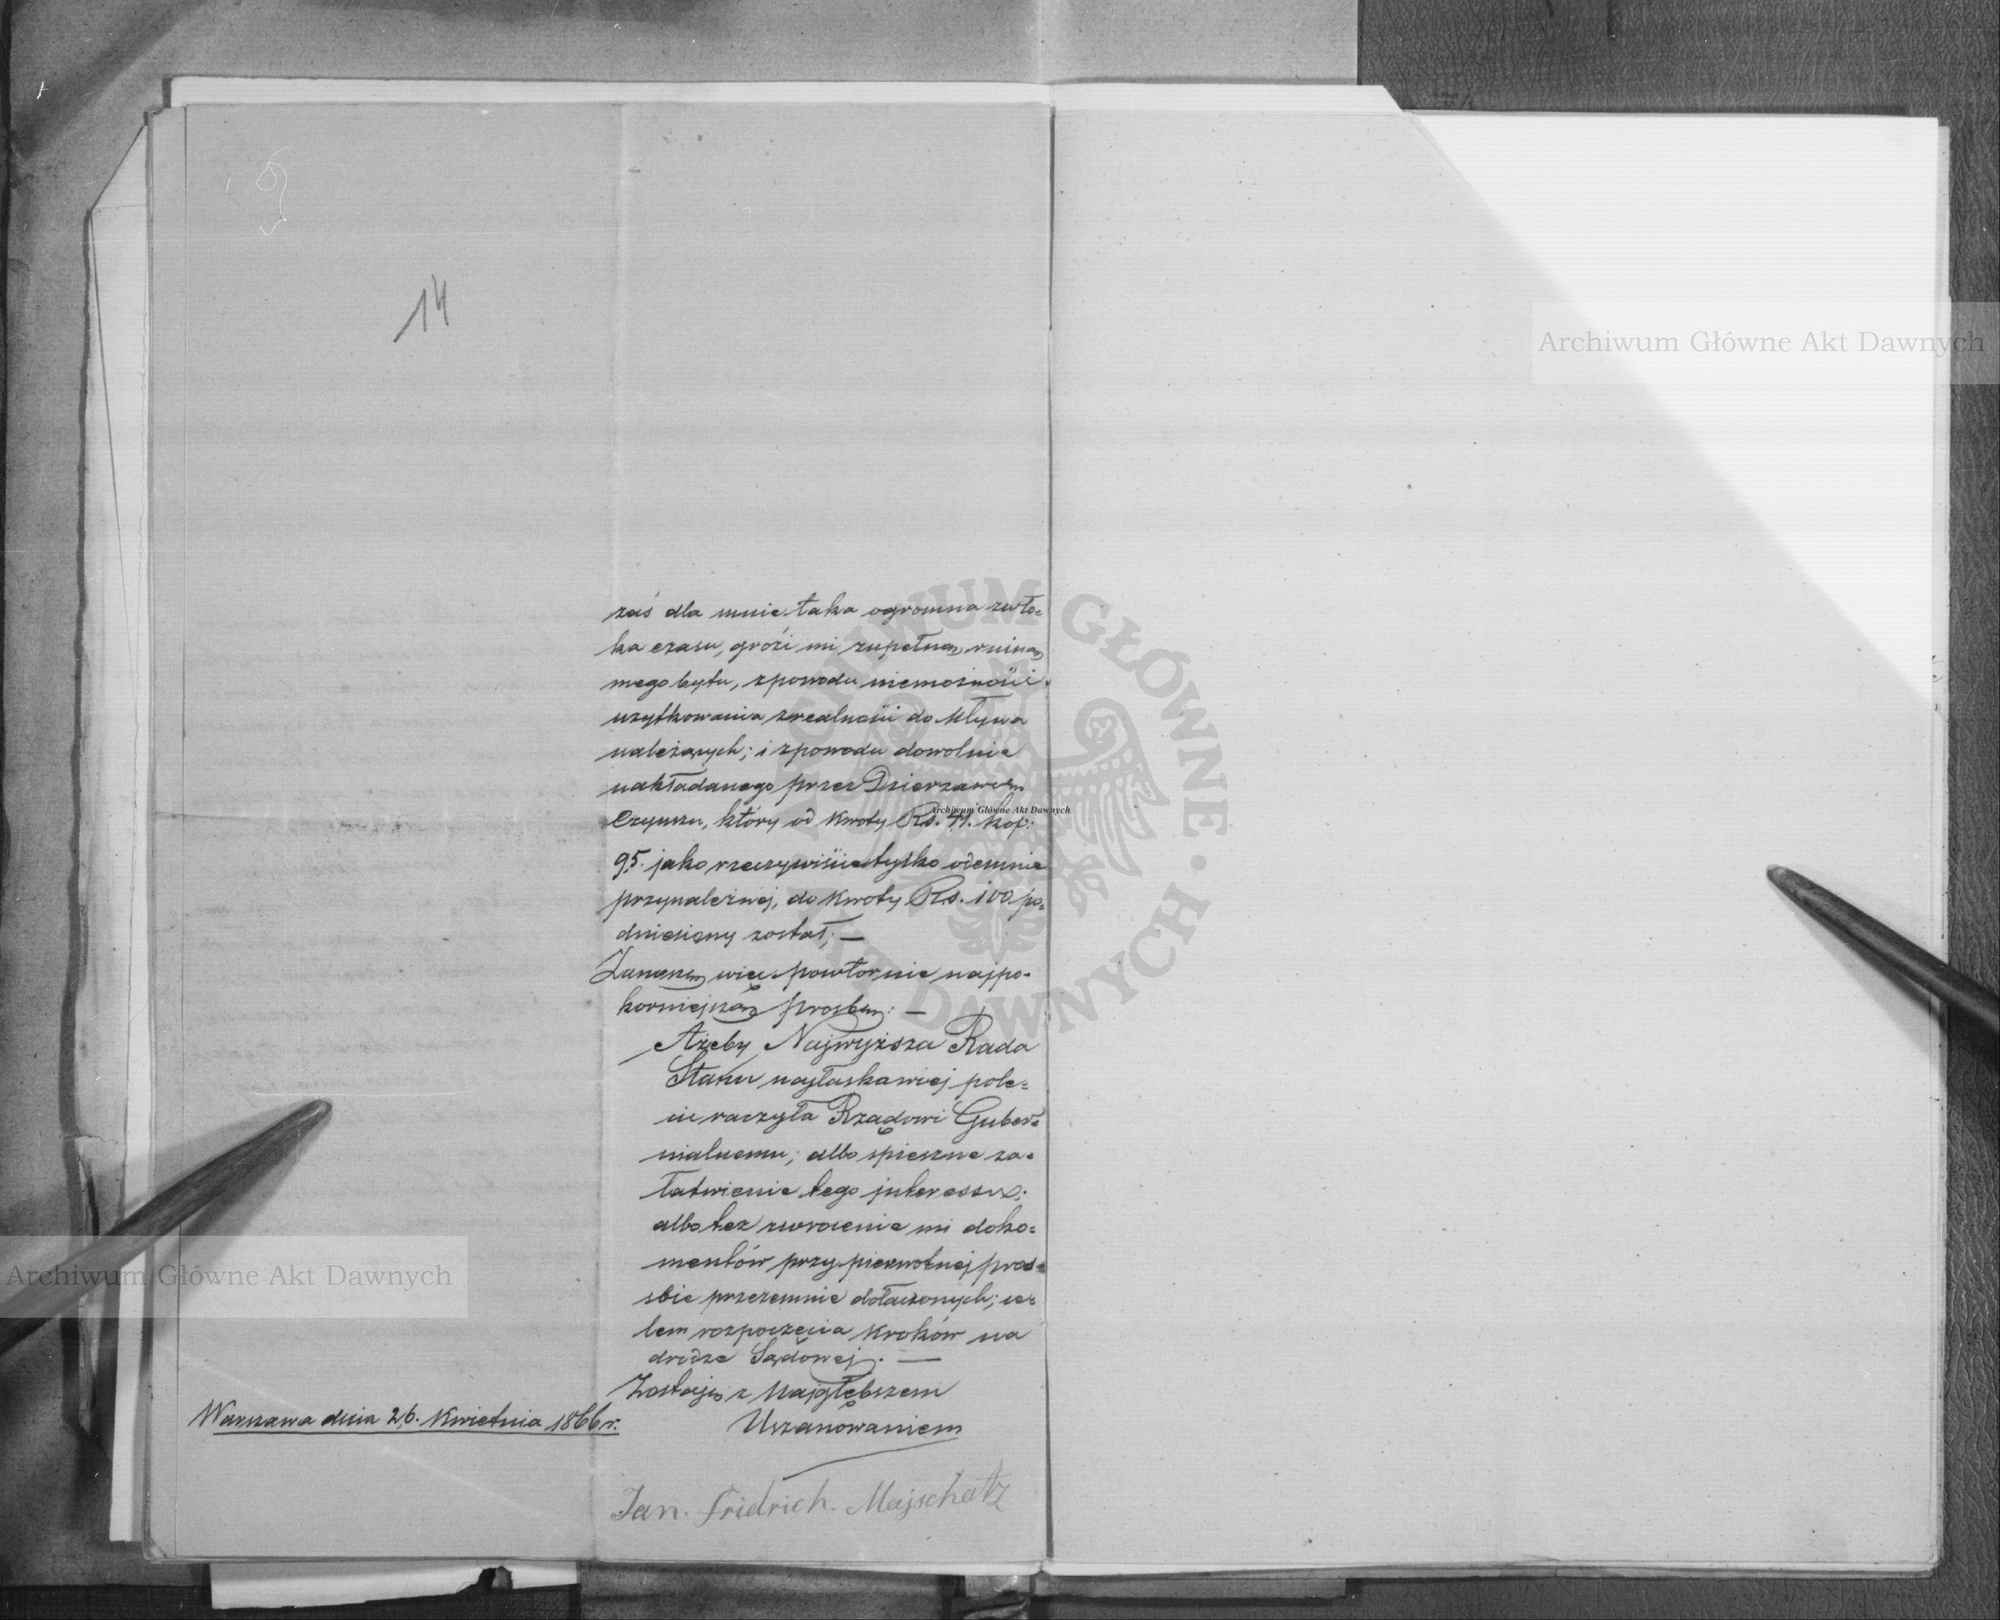 14
zaś dla mnie taka ogromna zwło=
ka czasu, grozi mi zupełną ruiną
mego bytu, z powodu niemożności
użytkowania z realności do Młyna
należących; i z powodu dowolnie
nakładanego przez Dzierżawcę
Czynszu, który od kwoty Rs. 41. kop:
95. jako rzeczywiście tylko odemnie
przynależnej, do kwoty Rs. 100 po=
dniesiony został; —
Zanoszę więc powtornie najpo=
korniejszą prosbę: —
Ażeby Najwyższa Rada
Stanu najłaskawiej pole=
cić raczyła Rządowi Guber=
nialnemu; albo spieszne za=
łatwienie tego interessu;
albo tez zwrocenie mi doko=
mentów przy pierwotnej proś=
sbie przezemnie dołączonych; ce=
lem rozpoczęcia kroków na
drodze Sądowej. —
Zostaję z Najgłębszem
Uszanowaniem
Warszawa dnia 26. Kwietnia 1866 r.
Jan. Fridrich. Majschatz
Archiwum Główne Akt Dawnych
Archiwum Główne Akt Dawnych
Archiwum Główne Akt Dawnych
ARCHIWUM GŁÓWNE · AKT DAWNYCH ·